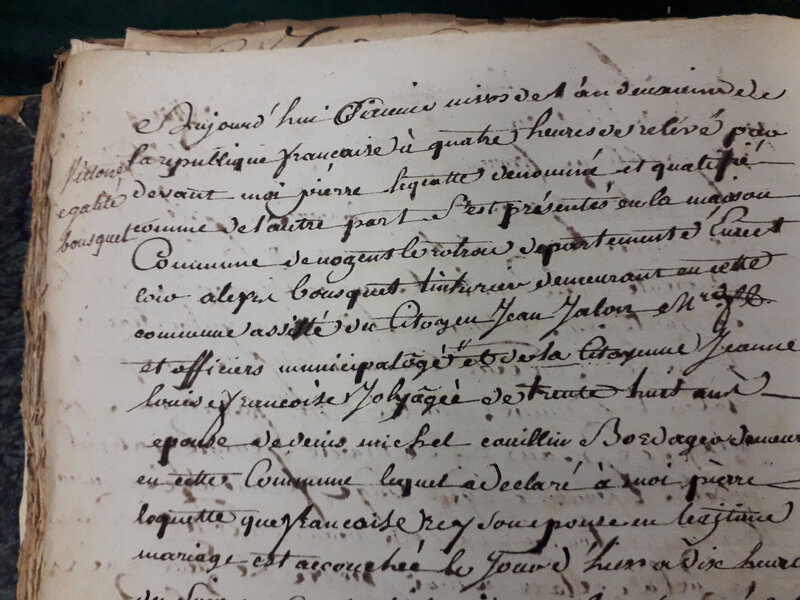 Aujourd'hui nivos de l'an deuxieme de
la republique francaise à quatre heures de relévé par
Victoire
egalité
bousquet
devant moi pierre loquette denommé et qualifié
comme de l'autre part S'est présentés en la maison
Commune de nogent le rotrou departement d'Eure et
loir alexis bousquet tinturier demeurant en cette
commune assisté du Citoyen Jean
et officiers municipal et de la Citoyenne Jeanne
louise francoise Joly âgée de trente huit ans
epouse de denis michel couillin demeur
en cette Commune lequel a declaré à moi pierre
loquette que francoise rey son epouse en legitime
mariage est accouchée le Jour d'hier a dix heure